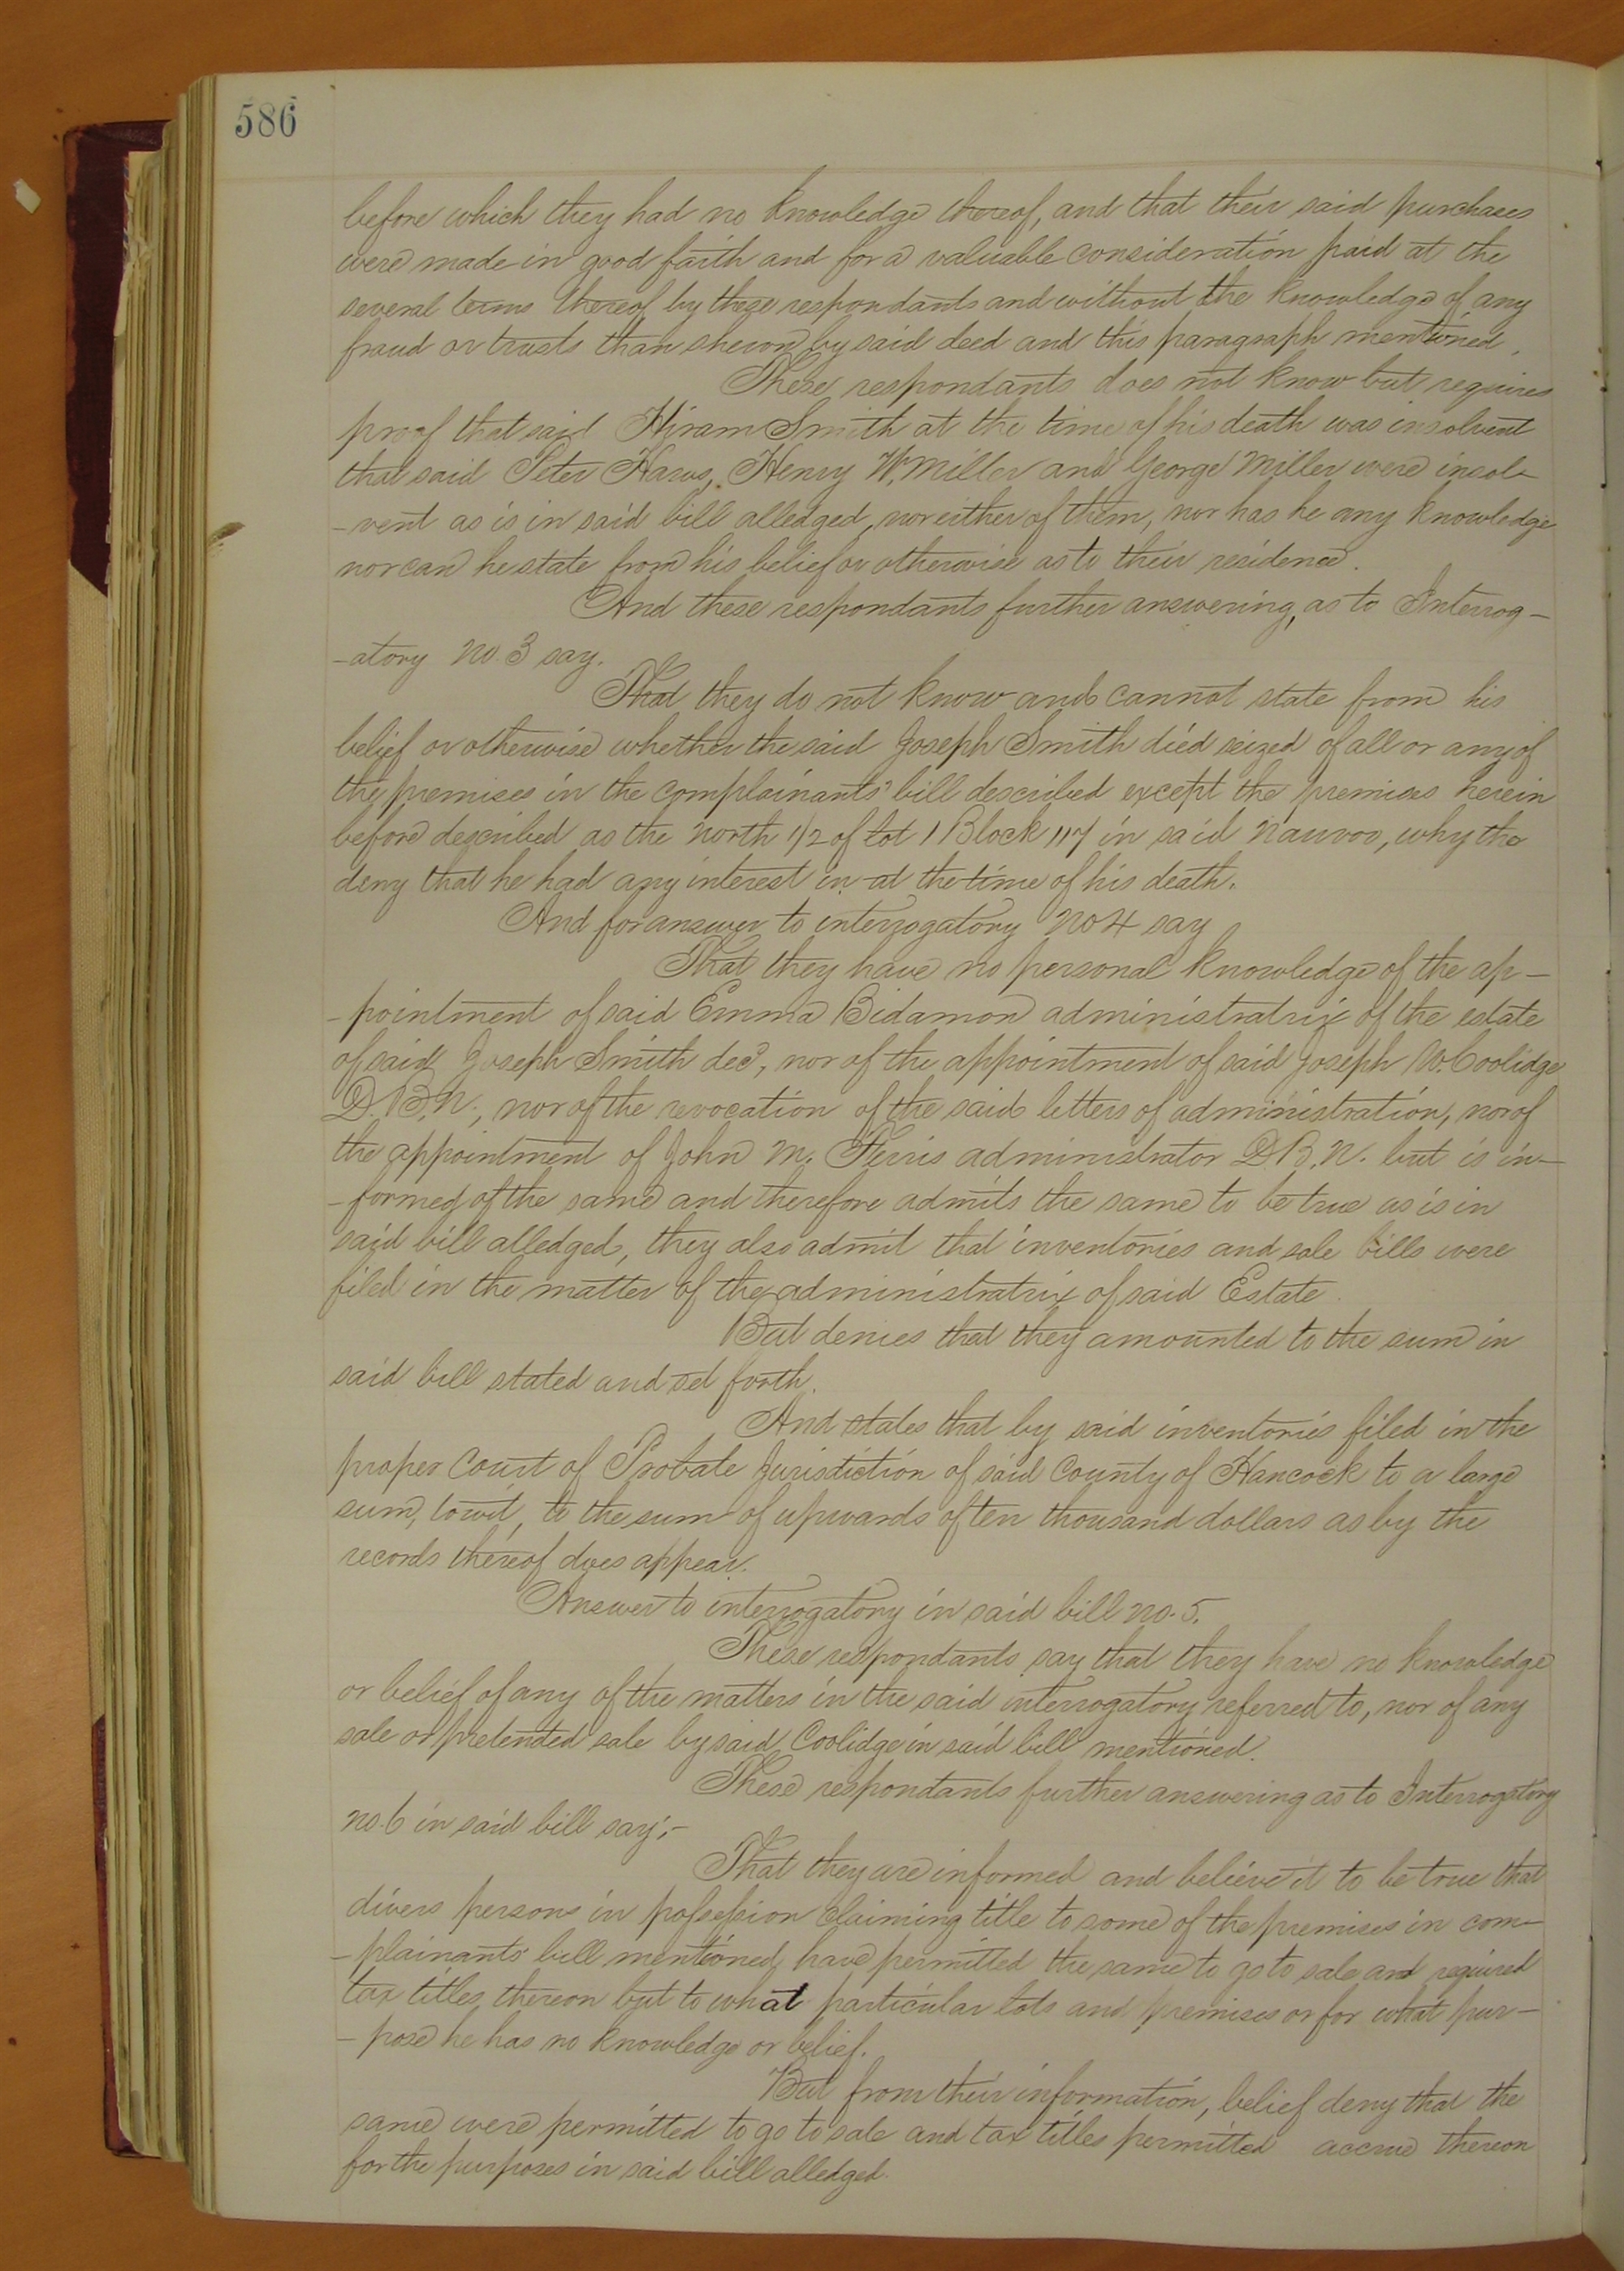 586
before which they had no knowledge thereof, and that their said purchases
were made in good faith and for a valuable consideration paid at the
several terms thereof by these respondants and without the knowledge of any
fraud or trusts than shewn by said deed and this paragraph mentioned.
These respondants does not know but requires
proof that said Hiram Smith at the time of his death was insolvent
that said Peter Haws, Henry W. Miller and George Miller were insol-
-vent as is in said bill alledged, nor either of them, nor has he any knowledge
nor can he state from his belief or otherwise as to their residence.
And these respondants further answering, as to Interrog-
-atory No. 3 say.
That they do not know and cannot state from his
belief or otherwise whether the said Joseph Smith died seized of all or any of
the premises in the complainants' bill described except the premises herein
before described as the North 1/2 of lot 1 Block 117 in said Nauvoo, why the
deny that he had any interest in at the time of his death.
And for answer to interrogatory No 4 say
That they have no personal knowledge of the ap-
-pointment of said Emma Bidamon administratrix of the estate
of said Joseph Smith decd, nor of the appointment of said Joseph W. Coolidge
D.B.N., nor of the revocation of the said letters of administration, nor of
the appointment of John M. Ferris administrator D.B.N. but is in-
-formed of the same and therefore admits the same to be true as is in
said bill alledged, they also admit that inventories and sale bills were
filed in the matter of the administratrix of said Estate.
But denies that they amounted to the sum in
said bill stated and set forth.
And states that by said inventories filed in the
proper Court of Probate Jurisdiction of said County of Hancock to a large
sum, towit, to the sum of upwards of ten thousand dollars as by the
records thereof does appear.
Answer to interrogatory in said bill No. 5.
These respondants say that they have no knowledge
or belief of any of the matters in the said interrogatory referred to, nor of any
sale or pretended sale by said Coolidge in said bill mentioned.
These respondants further answering as to Interrogatory
No. 6 in said bill say;-
That they are informed and believe it to be true that
divers persons in possession claiming title to some of the premises in com-
-plainants' bill mentioned have permitted the same to go to sale and required
tax titles thereon but to what particular lots and premises or for what pur-
-pose he has no knowledge or belief.
But from their information, belief deny that the
same were permitted to go to sale and tax titles permitted accrue thereon
for the purposes in said bill alledged.